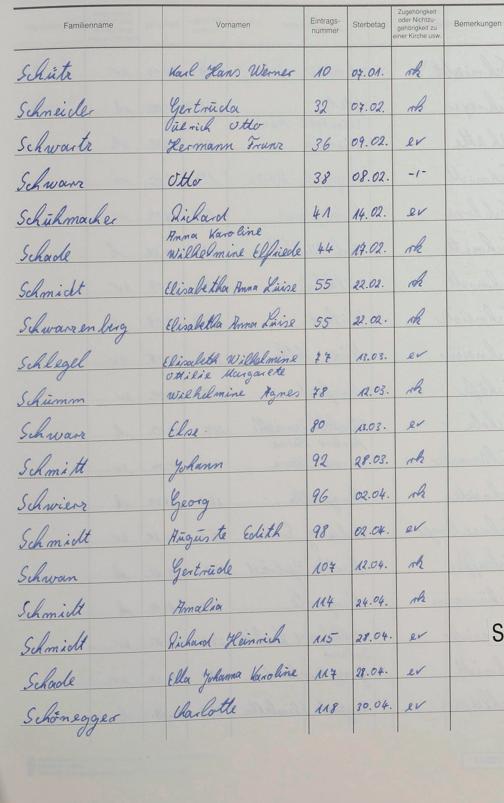 Familienname Vornamen Eintrags-nummer Sterbetag Zugehörigkeit oder Nichtzu-gehörigkeit zu einer Kirche usw. Bemerkungen
Schütz Karl Hans Werner 10 07.01. rk
Schneider Gertruda 32 07.02. rk
Schwartz Ulrich Otto Hermann Franz 36 09.02. ev
Schwarz Otto 38 08.02. -1-
Schuhmacher Richard 41 14.02. ev
Schade Anna Karoline Wilhelmine Elfriede 44 17.02. rk
Schmidt Elisabetha Anna Luise 55 22.02. rk
Schwarzenberg Elisabetha Anna Luise 55 22.02. rk
Schlegel Elisabeth Wilhelmine 77 13.03. ev
Schumm Ottilie Margarete Wilhelmine Agnes 78 12.03. rk
Schwarz Else 80 13.03. ev
Schmitt Johann 92 28.03. rk
Schwierz Georg 96 02.04. rk
Schmidt Auguste Edith 98 02.04. ev
Schwan Gertrude 107 12.04. rk
Schmidt Amalia 114 24.04. rk
Schmidt Richard Heinrich 115 28.04. ev
S
Schade Ella Johanna Karoline 117 28.04. ev
Schönegger Charlotte 118 30.04. ev